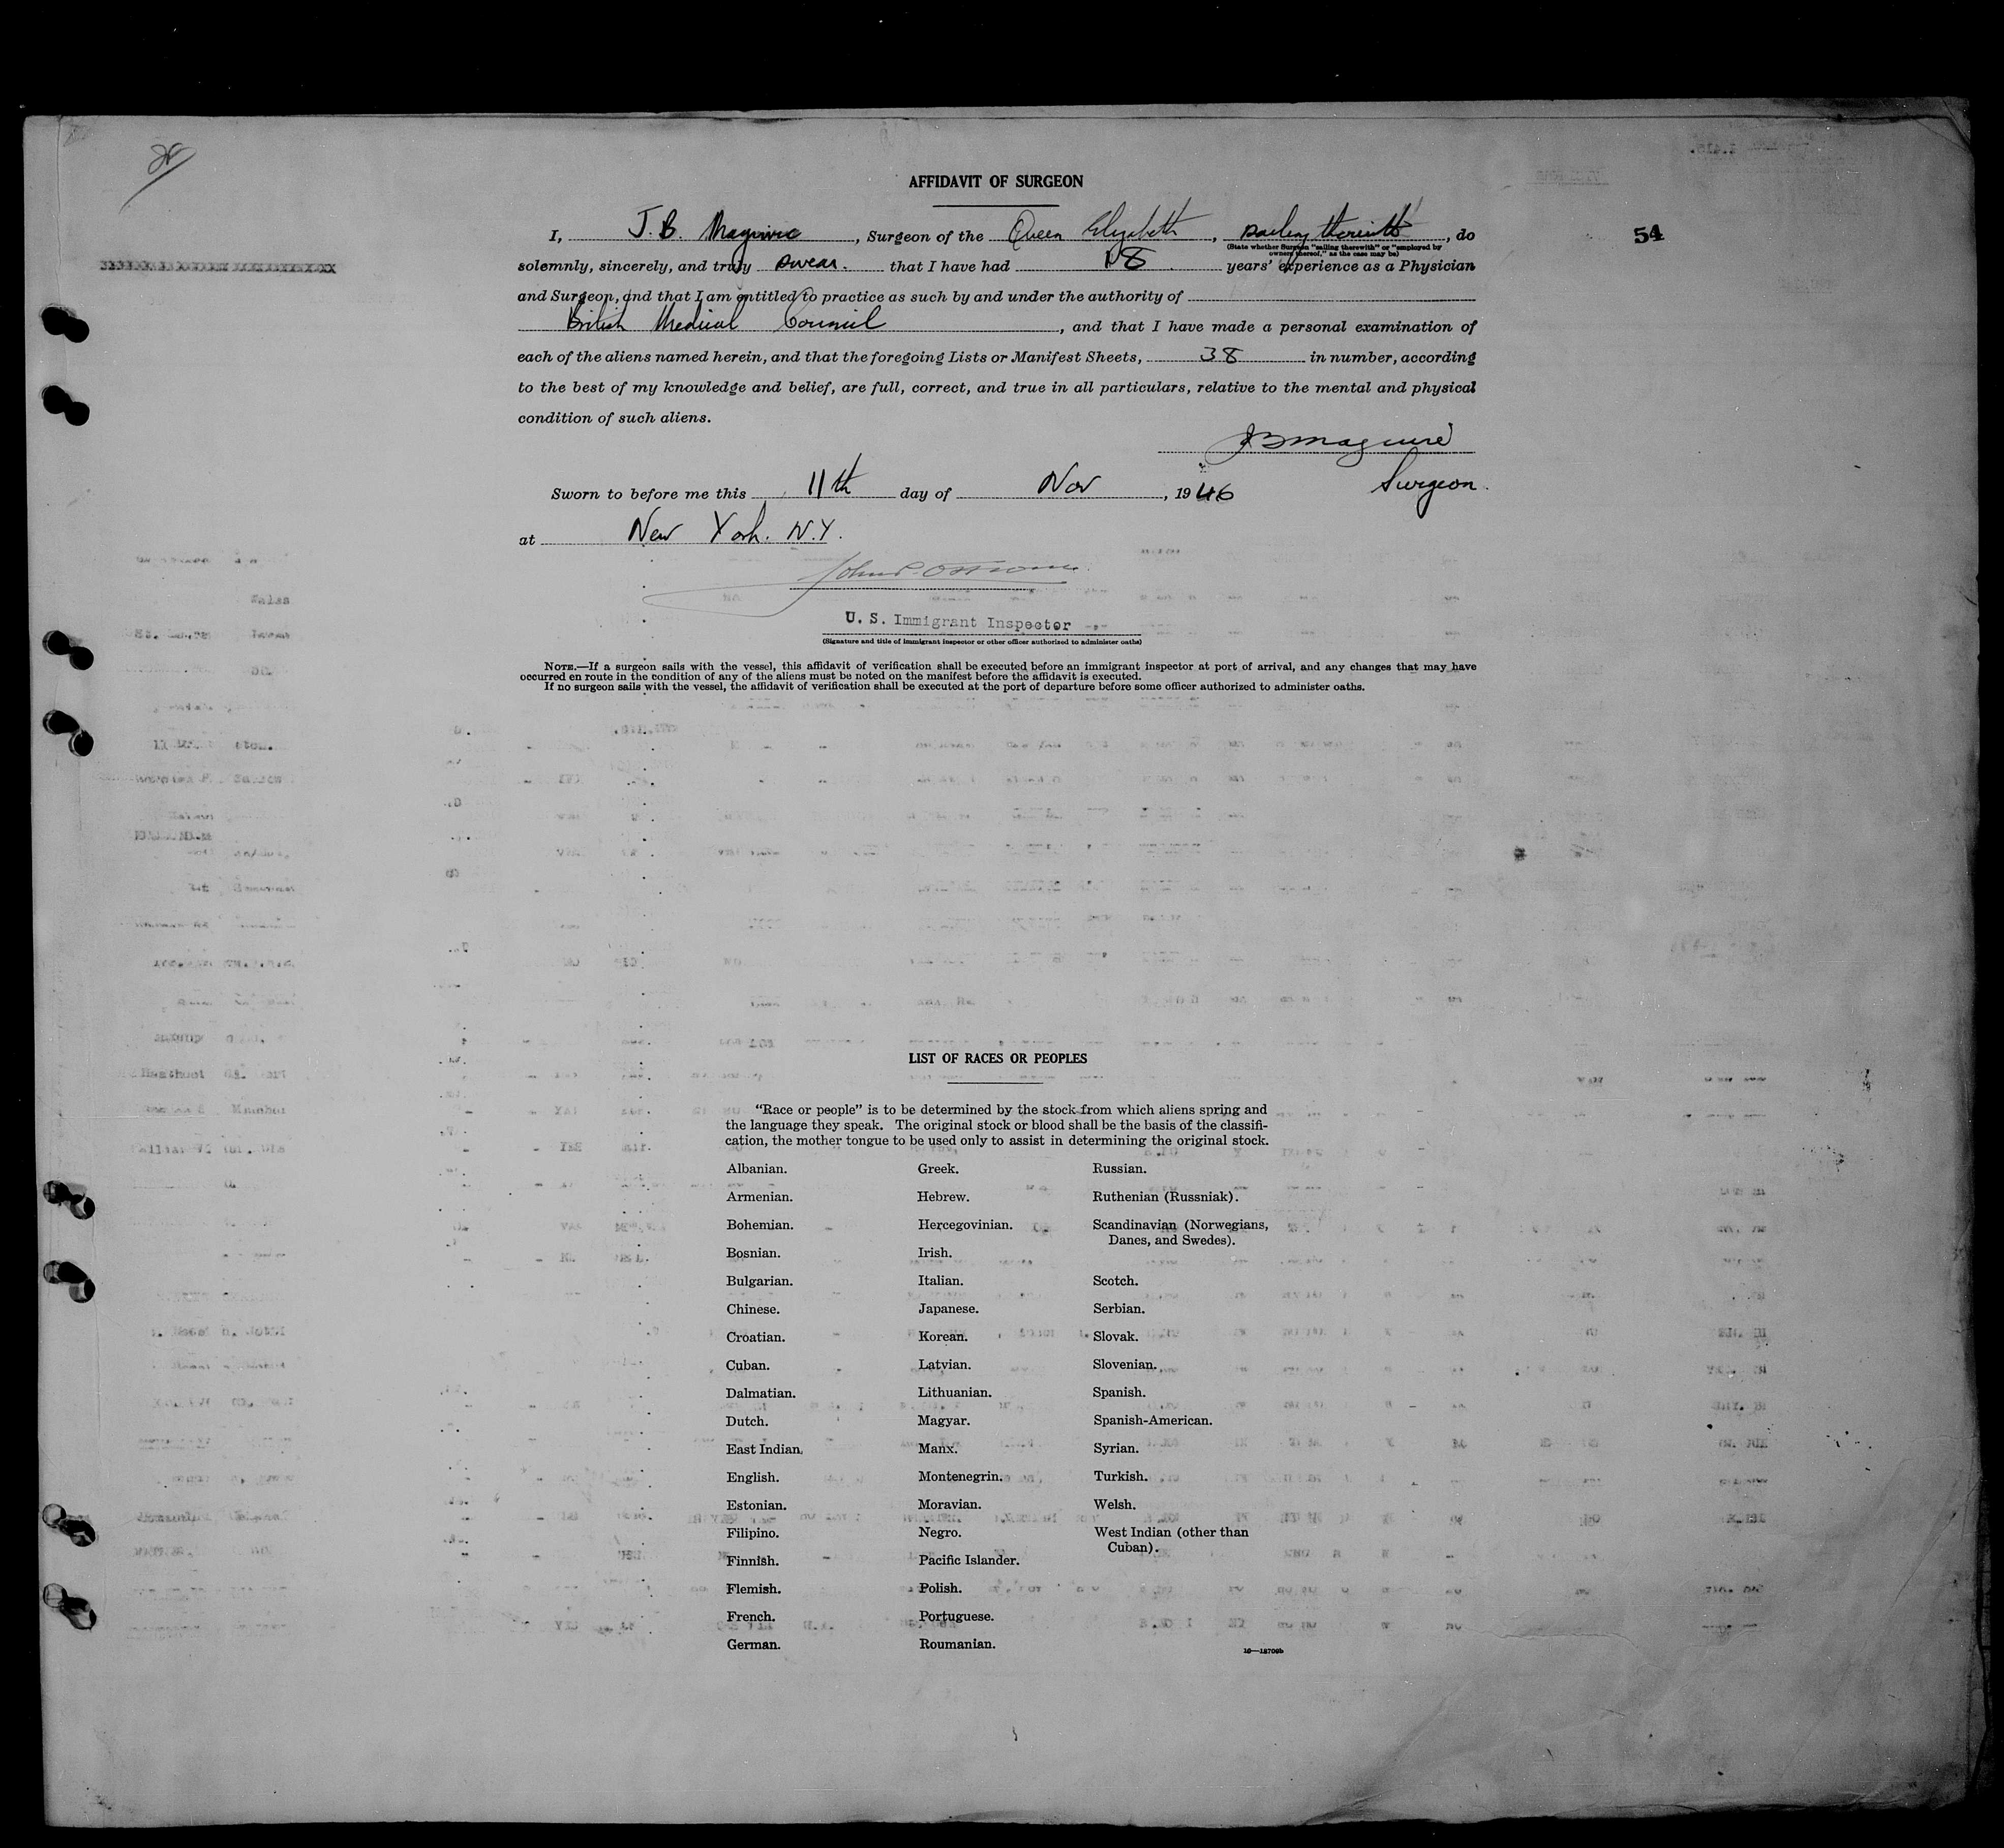 AFFIDAVIT OF SURGEON
I, J. B. Maguire, Surgeon of the Queen Elizabeth, sailing therewith, do
54
(State whether Surgeon "sailing therewith" or "employed by
owners thereof," as the case may be)
solemnly, sincerely, and truly swear. that I have had 18 years' experience as a Physician
and Surgeon, and that I am entitled to practice as such by and under the authority of
British Medical Council, and that I have made a personal examination of
each of the aliens named herein, and that the foregoing Lists or Manifest Sheets, 38 in number, according
to the best of my knowledge and belief, are full, correct, and true in all particulars, relative to the mental and physical
condition of such aliens.
JB Maguire
Surgeon.
Sworn to before me this 11th day of Nov, 1946
at New York. N.Y.
U. S. Immigrant Inspector
(Signature and title of immigrant inspector or other officer authorized to administer oaths)
NOTE.—If a surgeon sails with the vessel, this affidavit of verification shall be executed before an immigrant inspector at port of arrival, and any changes that may have
occurred en route in the condition of any of the aliens must be noted on the manifest before the affidavit is executed.
If no surgeon sails with the vessel, the affidavit of verification shall be executed at the port of departure before some officer authorized to administer oaths.
LIST OF RACES OR PEOPLES
"Race or people" is to be determined by the stock from which aliens spring and
the language they speak. The original stock or blood shall be the basis of the classifi-
cation, the mother tongue to be used only to assist in determining the original stock.
Albanian.
Armenian.
Bohemian.
Bosnian.
Bulgarian.
Chinese.
Croatian.
Cuban.
Dalmatian.
Dutch.
East Indian.
English.
Estonian.
Filipino.
Finnish.
Flemish.
French.
German.
Greek.
Hebrew.
Hercegovinian.
Irish.
Italian.
Japanese.
Korean.
Latvian.
Lithuanian.
Magyar.
Manx.
Montenegrin.
Moravian.
Negro.
Pacific Islander.
Polish.
Portuguese.
Roumanian.
Russian.
Ruthenian (Russniak).
Scandinavian (Norwegians,
Danes, and Swedes).
Scotch.
Serbian.
Slovak.
Slovenian.
Spanish.
Spanish-American.
Syrian.
Turkish.
Welsh.
West Indian (other than
Cuban).